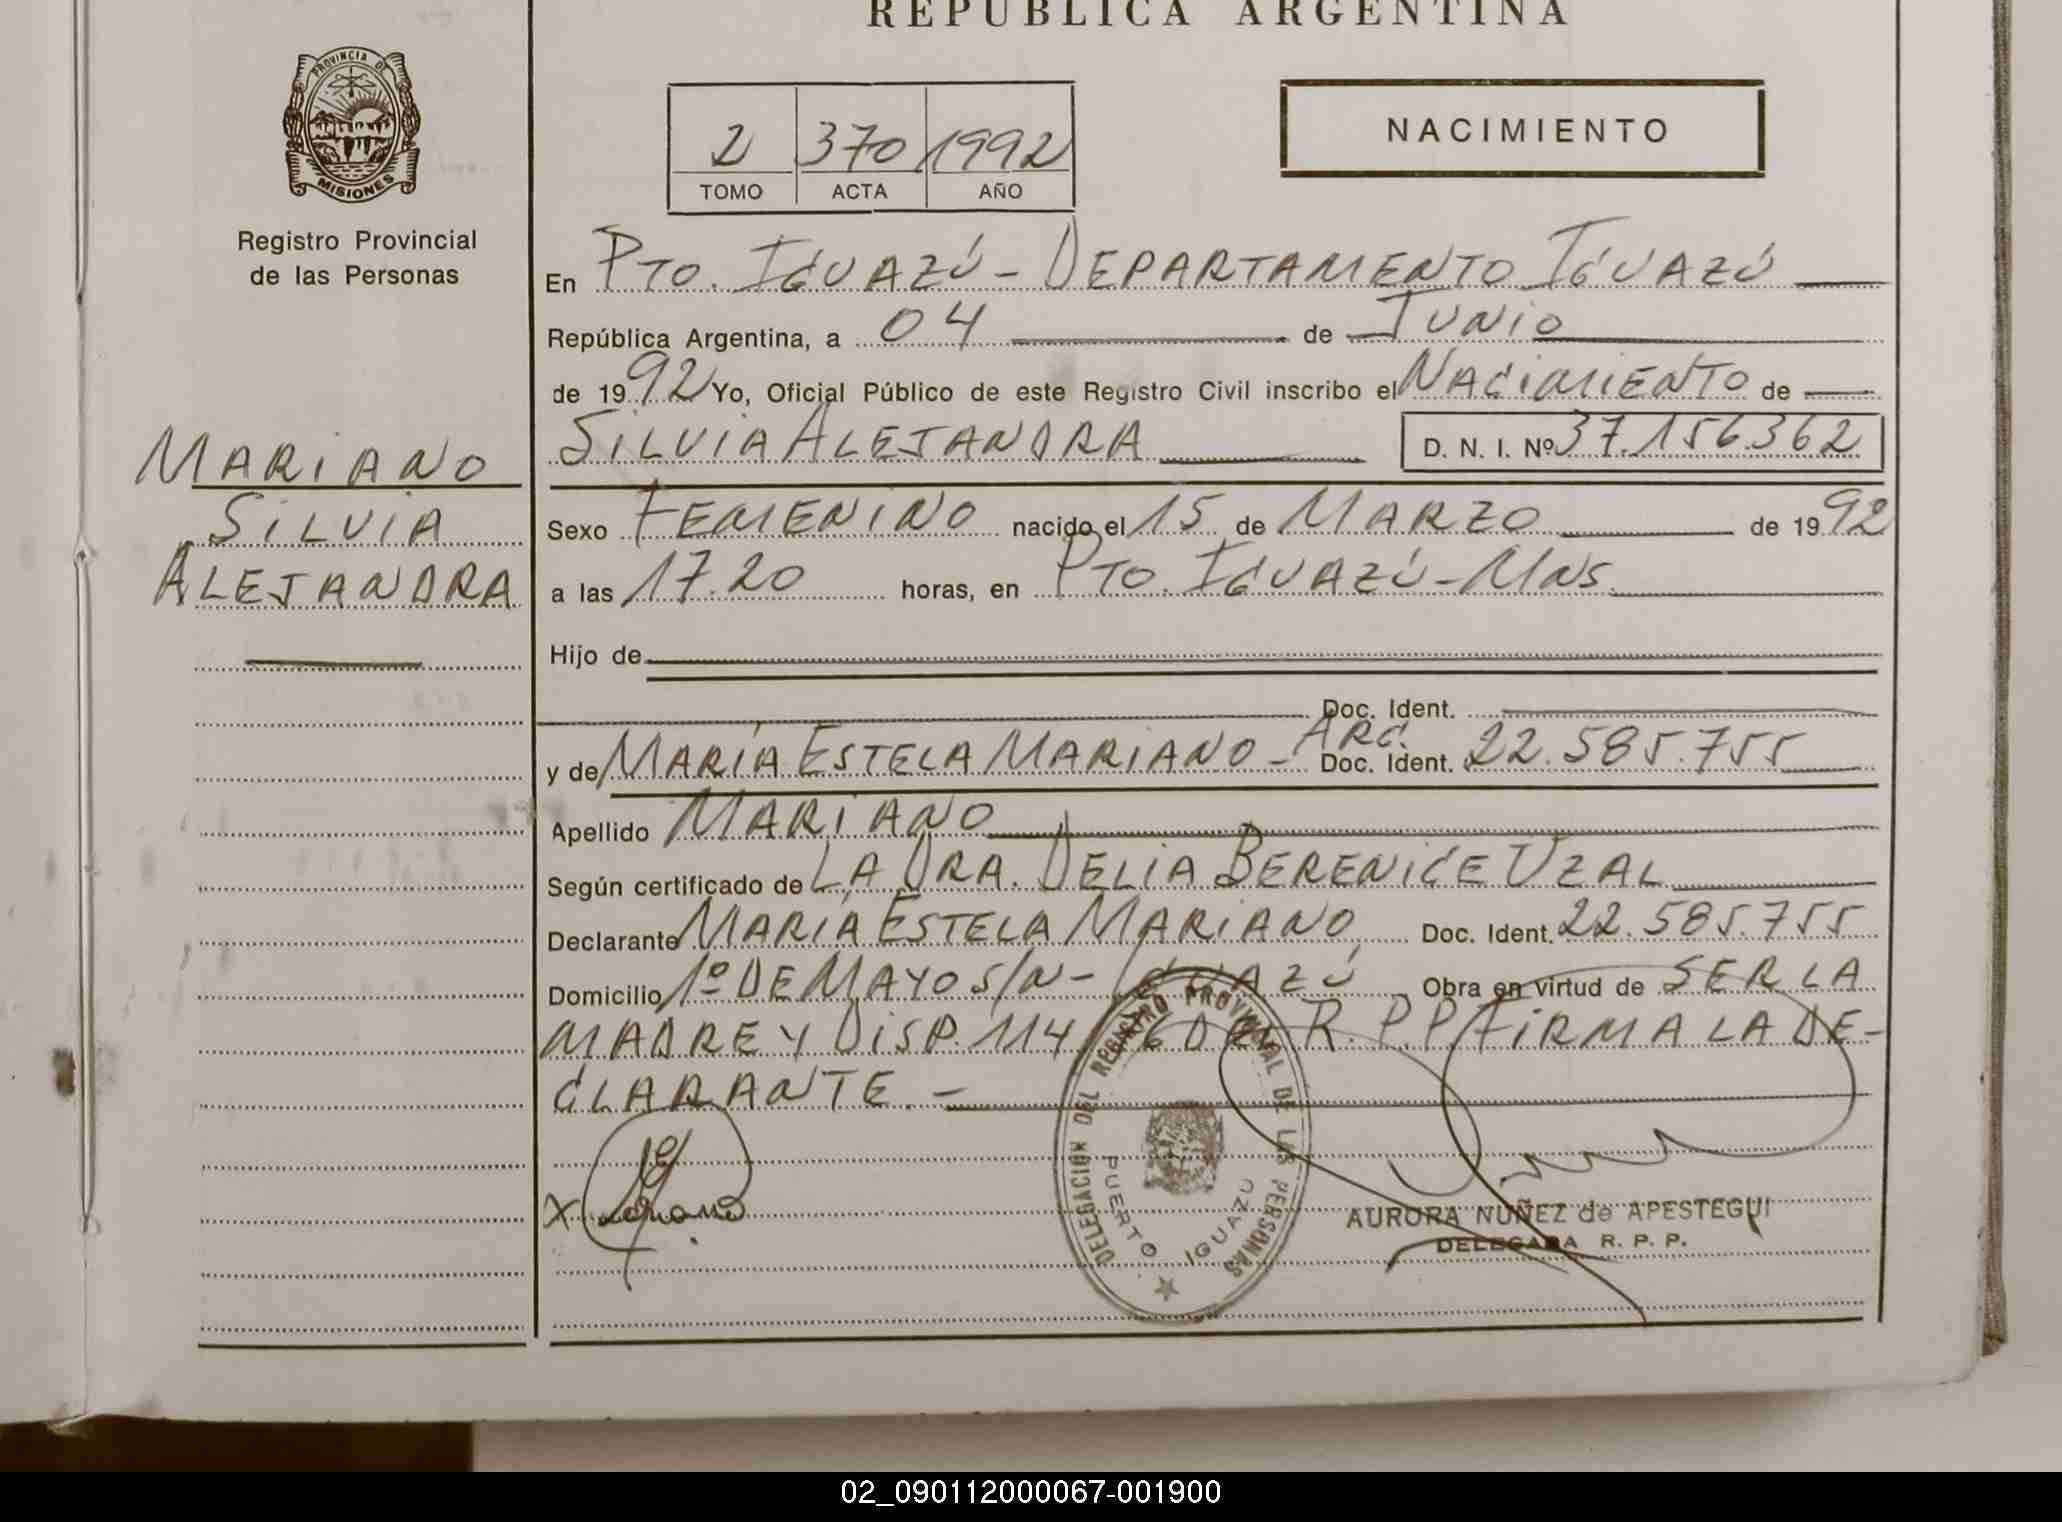 REPUBLICA ARGENTINA
PROVINCIA DE
MISIONES
Registro Provincial
de las Personas
2 370 1992
TOMO ACTA AÑO
NACIMIENTO
En PTO. IGUAZÚ - DEPARTAMENTO IGUAZÚ
República Argentina, a 04 de JUNIO
de 1992 Yo, Oficial Público de este Registro Civil inscribo el NACIMIENTO de
SILVIA ALEJANDRA D. N. I. Nº 37.156.362
MARIANO
SILVIA
ALEJANDRA
Sexo FEMENINO nacido el 15 de MARZO de 1992
a las 17.20 horas, en PTO. IGUAZÚ - MNS.
Hijo de
Doc. Ident.
y de MARÍA ESTELA MARIANO - ARG. Doc. Ident. 22.585.755
Apellido MARIANO
Según certificado de LA DRA. DELIA BERENICE UZAL
Declarante MARÍA ESTELA MARIANO, Doc. Ident. 22.585.755
Domicilio 1º DE MAYO S/N - IGUAZÚ Obra en virtud de SER LA
MADRE Y DISP. 114 R.P.P. FIRMA LA DE-
CLARANTE. -
DELEGACION DEL REGISTRO PROVINCIAL DE LAS PERSONAS
PUERTO IGUAZU
X
AURORA NUÑEZ de APESTEGUI
DELEGADA R. P. P.
02_090112000067-001900